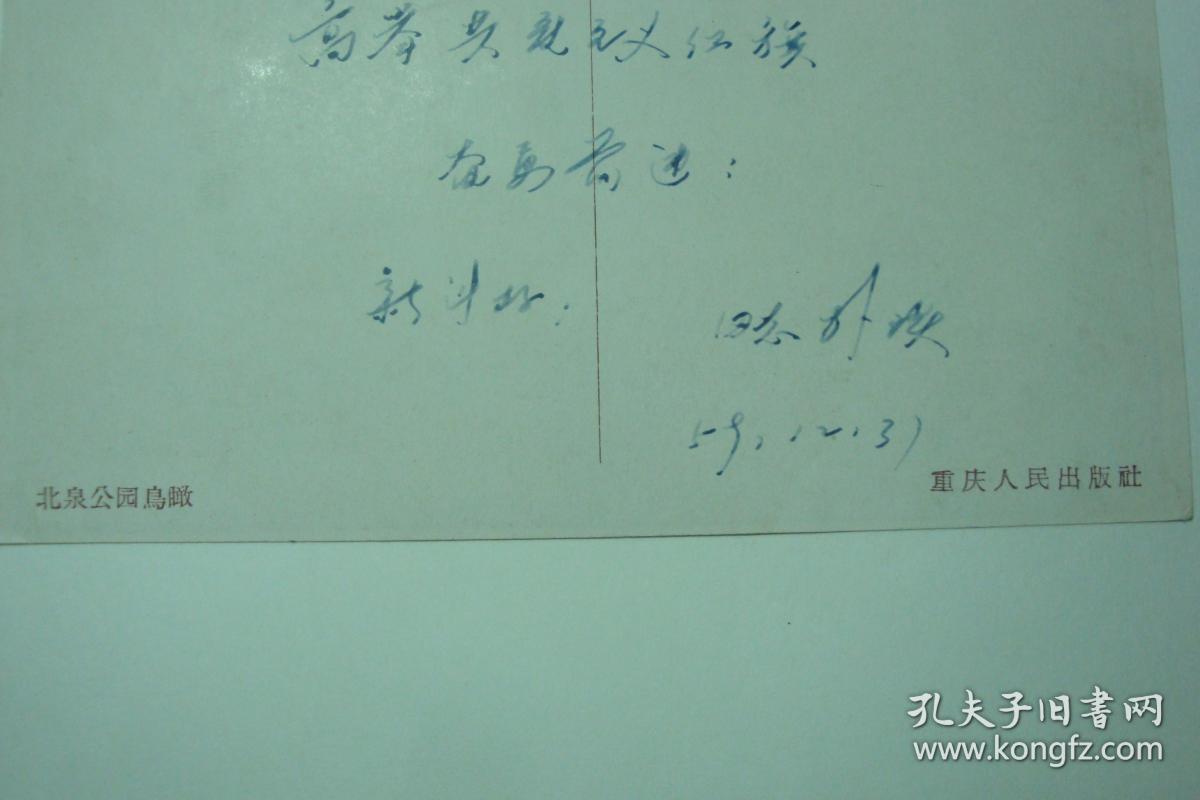 高举共产主义红旗
奋勇前进：
新年好：
同志
59.12.31
北泉公园鳥瞰
重庆人民出版社
孔夫子旧書网
www.kongfz.com